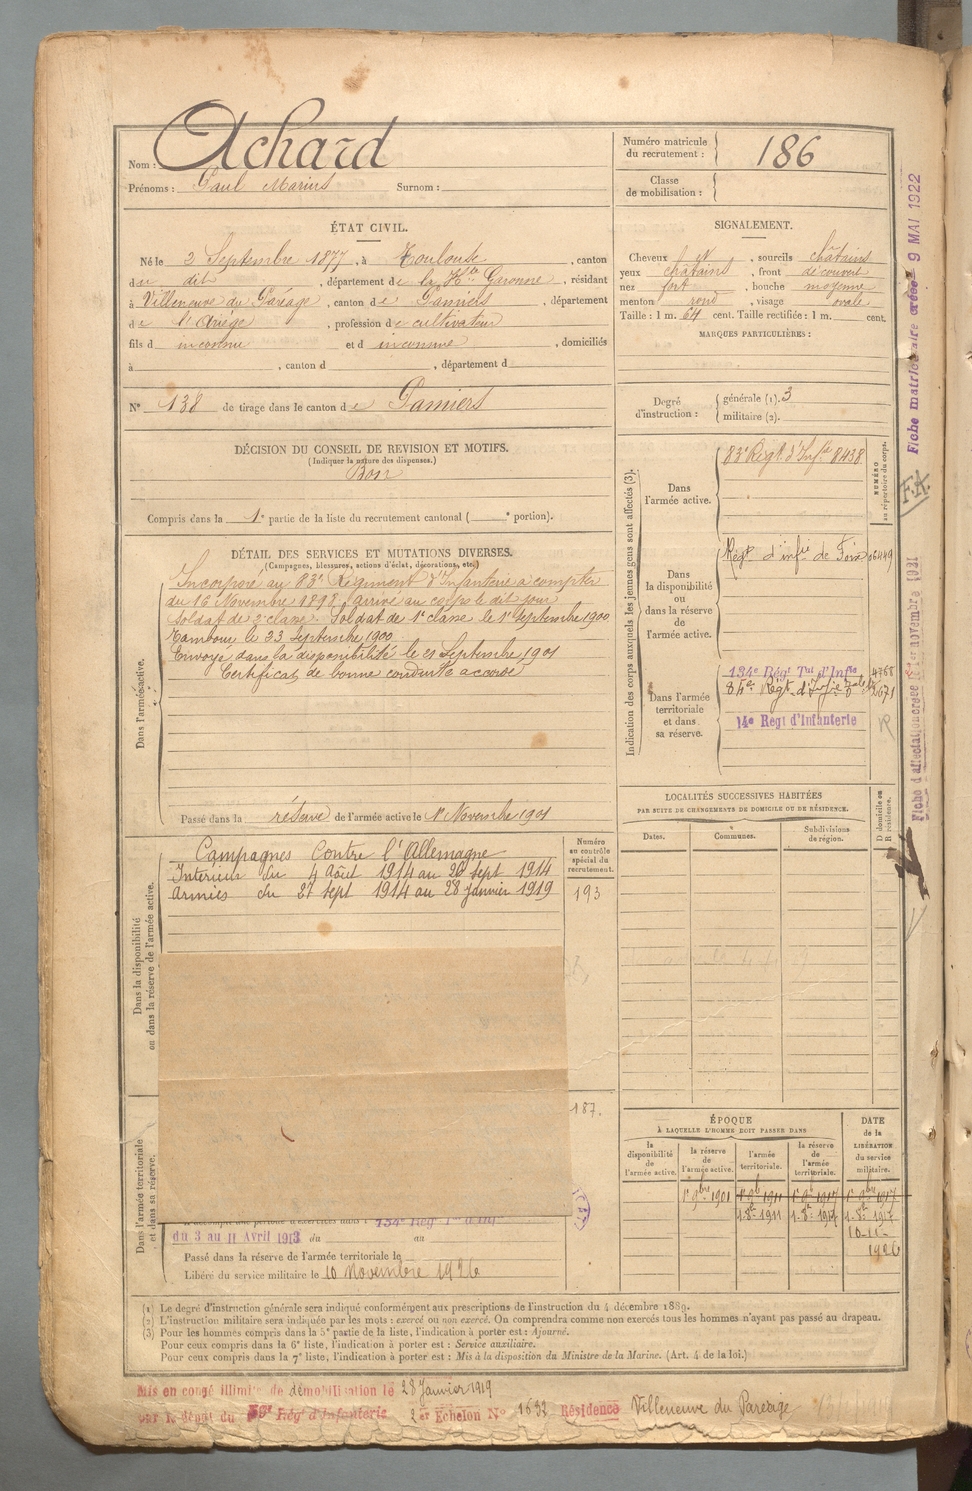 Nom : Achard
Prénoms : Paul Marius Surnom :
Numéro matricule du recrutement : 186
Classe de mobilisation :
ÉTAT CIVIL.
Né le 2 Septembre 1877, à Toulouse, canton
de dit, département de la Hte Garonne, résidant
à Villeneuve du Paréage, canton de Pamiers, département
de l'Ariège, profession de cultivateur
fils d inconnu et d inconnue, domiciliés
à , canton d , département d
N° 138 de tirage dans le canton de Pamiers
SIGNALEMENT.
Cheveux et , sourcils châtains
yeux châtains, front découvert
nez fort, bouche moyenne
menton rond, visage ovale
Taille : 1 m. 64 cent. Taille rectifiée : 1 m. cent.
MARQUES PARTICULIÈRES :
Degré d'instruction : générale (1). 3
militaire (2).
DÉCISION DU CONSEIL DE REVISION ET MOTIFS.
(Indiquer la nature des dispenses.)
Bon
Compris dans la 1e partie de la liste du recrutement cantonal ( e portion).
DÉTAIL DES SERVICES ET MUTATIONS DIVERSES.
(Campagnes, blessures, actions d'éclat, décorations, etc.)
Dans l'armée active.
Incorporé au 83e Régiment d'Infanterie à compter
du 16 Novembre 1898, arrivé au corps le dit jour
Soldat de 2e classe. Soldat de 1e classe le 1er Septembre 1900
Tambour le 23 Septembre 1900
Envoyé dans la disponibilité le 21 Septembre 1901
Certificat de bonne conduite accordé
Passé dans la réserve de l'armée active le 1er Novembre 1901
Indication des corps auxquels les jeunes gens sont affectés (3).
NUMÉRO au répertoire du corps.
Dans l'armée active.
83e Régt d'Infie 8438
Dans la disponibilité ou dans la réserve de l'armée active.
Régt d'infie de Foix 06449
Dans l'armée territoriale et dans sa réserve.
134e Régt Tal d'Infie 4768
14e Régt d'Infanterie
R
LOCALITÉS SUCCESSIVES HABITÉES
PAR SUITE DE CHANGEMENTS DE DOMICILE OU DE RÉSIDENCE.
Dates. Communes. Subdivisions de région. D domicile ou R résidence.
Dans la disponibilité ou dans la réserve de l'armée active.
Numéro au contrôle spécial du recrutement.
Campagnes Contre l'Allemagne
Intérieur du 4 Août 1914 au 26 Sept 1914
Armées du 27 Sept 1914 au 28 janvier 1919
193
187.
Dans l'armée territoriale et dans sa réserve.
134e Régt
du 3 au 11 Avril 1913 du au
Passé dans la réserve de l'armée territoriale le
Libéré du service militaire le 10 Novembre 1926
ÉPOQUE
À LAQUELLE L'HOMME DOIT PASSER DANS
la disponibilité de l'armée active.
la réserve de l'armée active.
l'armée territoriale.
la réserve de l'armée territoriale.
DATE de la LIBÉRATION du service militaire.
1er 9bre 1901 1er 9b 1911 1er 9b 1917 1er 9bre 1917
1-8e 1911 1-8e 1917 1-8e 1917
10-11-1926
(1) Le degré d'instruction générale sera indiqué conformément aux prescriptions de l'instruction du 4 décembre 1889.
(2) L'instruction militaire sera indiquée par les mots : exercé ou non exercé. On comprendra comme non exercés tous les hommes n'ayant pas passé au drapeau.
(3) Pour les hommes compris dans la 5e partie de la liste, l'indication à porter est : Ajourné.
Pour ceux compris dans la 6e liste, l'indication à porter est : Service auxiliaire.
Pour ceux compris dans la 7e liste, l'indication à porter est : Mis à la disposition du Ministre de la Marine. (Art. 4 de la loi.)
Mis en congé illimité de démobilisation le 28 Janvier 1919
par le dépôt du 59e Régt d'Infanterie 2er Échelon N° 1632 Résidence Villeneuve du Pareage
Fiche matriculaire créée le 9 MAI 1922
F.A.
Fiche d'affectation créée le 1er novembre 1921